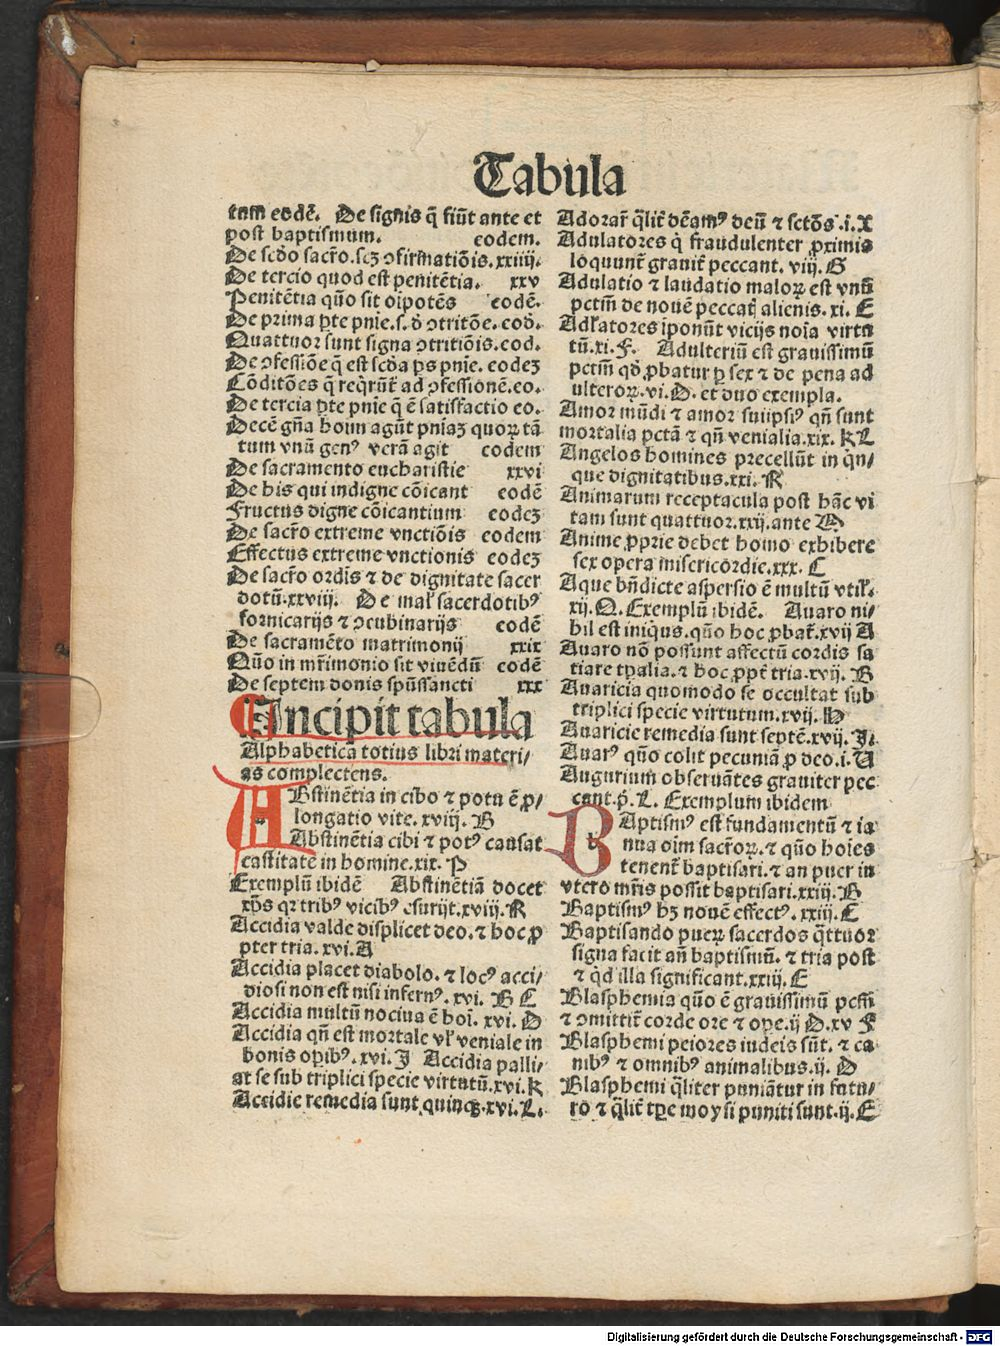 Tabula
tum eodē. De signis q̄ fiūt ante et
post baptismum. eodem.
De scdo sacro.scȝ ↄfirmatiōis.xxiiij.
De tercio quod est penitētia. xxv
Penitētia quō sit oīpotēs eodē.
De prima ꝑte pnie.s.d ↄtritōe.eod.
Quattuor sunt signa ↄtritiōis.eod.
De ↄfessiōe q̄ est scda ps pnie. eodeȝ
Cōditōes q̄ reqrūt ad ↄfessionē.eo.
De tercia ꝑte pnie q̄ ē satisfactio eo.
Decē gn̄a hoim agūt pniaȝ quoꝝ tā
tum vnū genꝰ verā agit eodem
De sacramento eucharistie xxvi
De his qui indigne cōicant eodē
Fructus digne cōicantium eodeȝ
De sacro extreme vnctiōis eodem
Effectus extreme vnctionis eodeȝ
De sacro ordis ⁊ de dignitate sacer
dotū.xxviij. De mal sacerdotibꝰ
fornicarijs ⁊ ↄcubinarijs eodē
De sacramēto matrimonij xxix
Quō in mr̄imonio sit viuēdū eodē
De septem donis spūssancti xxx
Incipit tabula
Alphabeticā totius libri materi/
as complectens.
ABstinētia in cibo ⁊ potu ē ꝓ/
longatio vite. xviij. B
Abstinētia cibi ⁊ potꝰ causat
castitatē in homine.xix. P
Exemplū ibidē Abstinētiā docet
xp̄s qꝛ tribꝰ vicibꝰ esurijt.xviij.R
Accidia valde displicet deo.⁊ hoc ꝓ
pter tria.xvi.A
Accidia placet diabolo.⁊ locꝰ acci/
diosi non est nisi infernꝰ.xvi. B C
Accidia multū nociua ē hoī. xvi. D
Accidia qn̄ est mortale vl veniale in
bonis oꝑibꝰ.xvi. I Accidia palli/
at se sub triplici specie virtutū.xvi.K
Accidie remedia sunt quinqꝫ.xvi.L.
Adorar q̄lit dēamꝰ deū ⁊ sctōs.i.X
Adulatores q̄ fraudulenter ꝓximis
loquunt grauit peccant. viij. G
Adulatio ⁊ laudatio maloꝝ est vnū
pctm̄ de nouē peccatꝭ alienis.xi. E
Adlatores īponūt vicijs noīa virtu
tū.xi.F. Adulteriū est grauissimū
pctm̄ qd ꝓbatur ꝑ sex ⁊ de pena ad
ulteroꝝ.vi.D. et duo exempla.
Amor mūdi ⁊ amor suiipsiꝰ qn̄ sunt
mortalia pctā ⁊ qn̄ venialia.xix. K L
Angelos homines precellūt in qn/
que dignitatibus.xxi. R
Animarum receptacula post hāc vi
tam sunt quattuor.xxij.ante A
Anime ꝓprie debet homo exhibere
sex opera misericordie.xxx. C
Aque bn̄dicte aspersio ē multū vtil.
xij. Q. Exemplū ibidē. Auaro ni/
hil est iniqus.quō hoc ꝓbat.xvij A
Auaro nō possunt affectū cordis sa
tiare tꝑalia.⁊ hoc ꝓpt tria.xvij. B
Auaricia quomodo se occultat sub
triplici specie virtutum.xvij. H
Auaricie remedia sunt septē.xvij. I.
Auarꝰ quō colit pecuniā ꝓ deo.i.U
Augurium obseruātes grauiter pec
cant.p̄. L. Exemplum ibidem
BAptismꝰ est fundamentū ⁊ ia
nua oīm sacroꝝ.⁊ quō hoīes
tenent baptisari.⁊ an puer in
vtero mr̄is possit baptisari.xxiij. B
Baptismꝰ hȝ nouē effectꝰ.xxiij. C
Baptisando pueꝝ sacerdos q̄ttuor
signa facit an̄ baptismū.⁊ tria post
⁊ qd illa significant.xxiij. E
Blasphemia quō ē grauissimū pctm̄
⁊ ↄmittit corde ore ⁊ oꝑe.ij D.xv F
Blasphemi peiores iudeis sūt.⁊ ca
nibꝰ ⁊ omnibꝰ animalibus.ij. D
Blasphemi q̄liter puniātur in futu/
ro ⁊ q̄lit tꝑe moysi puniti sunt.ij. E
Digitalisierung gefördert durch die Deutsche Forschungsgemeinschaft - DFG